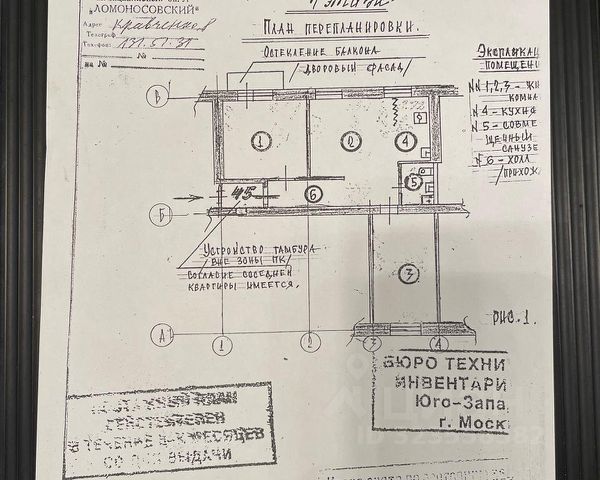 "ЛОМОНОСОВСКИЙ"
Адрес Кравченко 8
Телеграф
Телефон: 131.51.31
на № №
ПЛАН ПЕРЕПЛАНИРОВКИ.
ОСТЕКЛЕНИЕ БАЛКОНА
/ДВОРОВЫЙ ФАСАД/
ЭКСПЛИКАЦ
ПОМЕЩЕНИ
NN 1,2,3 - ЖИ
КОМНА
N 4 - КУХНЯ
N 5 - СОВМЕ
ЩЕННЫЙ
САНУЗЕ
N 6 - ХОЛЛ
/ПРИХОЖ
В
1
2
4
5
45
6
Б
УСТРОЙСТВО ТАМБУРА
ВНЕ ЗОНЫ ПК/
СОГЛАСИЕ СОСЕДНЕЙ
КВАРТИРЫ ИМЕЕТСЯ.
3
РИС. 1.
А
1
2
3
4
БЮРО ТЕХНИ
ИНВЕНТАРИ
Юго-Запа
г. Моск
СО ДНЯ ВЫДАЧИ